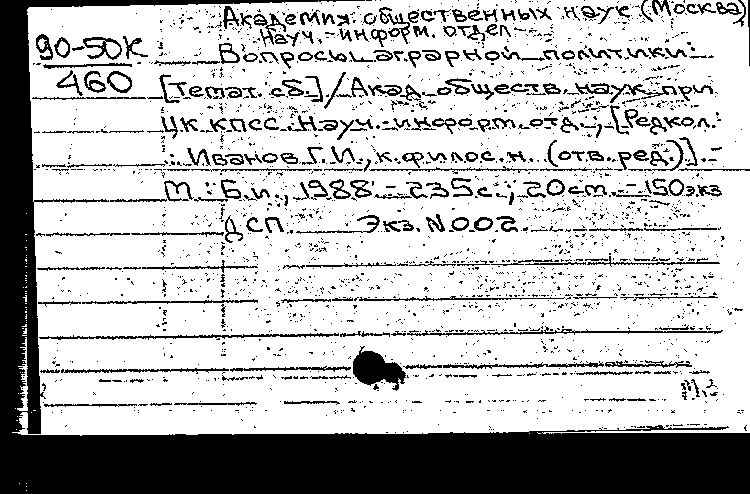 Академия общественных наук (Москва)
Науч.-информ. отдел
90-50К
460
Вопросы аграрной политики:
[Темат. сб.] / Акад. обществ. наук при
ЦК КПСС. Науч.-информ. отд.; [Редкол.:
: Иванов Г.И., к.филос.н. (отв. ред.)]. -
М.: Б.и., 1988. - 235с.; 20см. - 150экз
ДСП. Экз. N002.